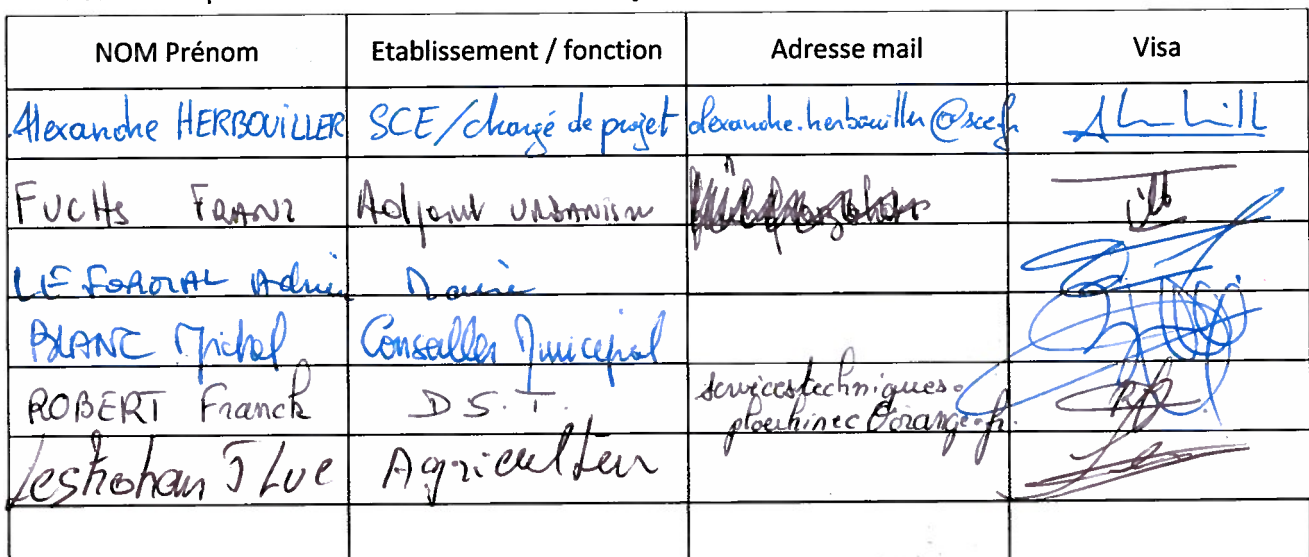 NOM Prénom Etablissement / fonction Adresse mail Visa
Alexandre HERBOUILLER SCE/chargé de projet alexandre.herbouiller@sce.fr
FUCHS FRANZ Adjoint URBANISM
LE Adrien Mairie
BLANC Michel Conseiller Municipal
ROBERT Franck D.S.T. servicestechniques.
plouhinec@orange.fr.
Leskohan J Luc Agriculteur